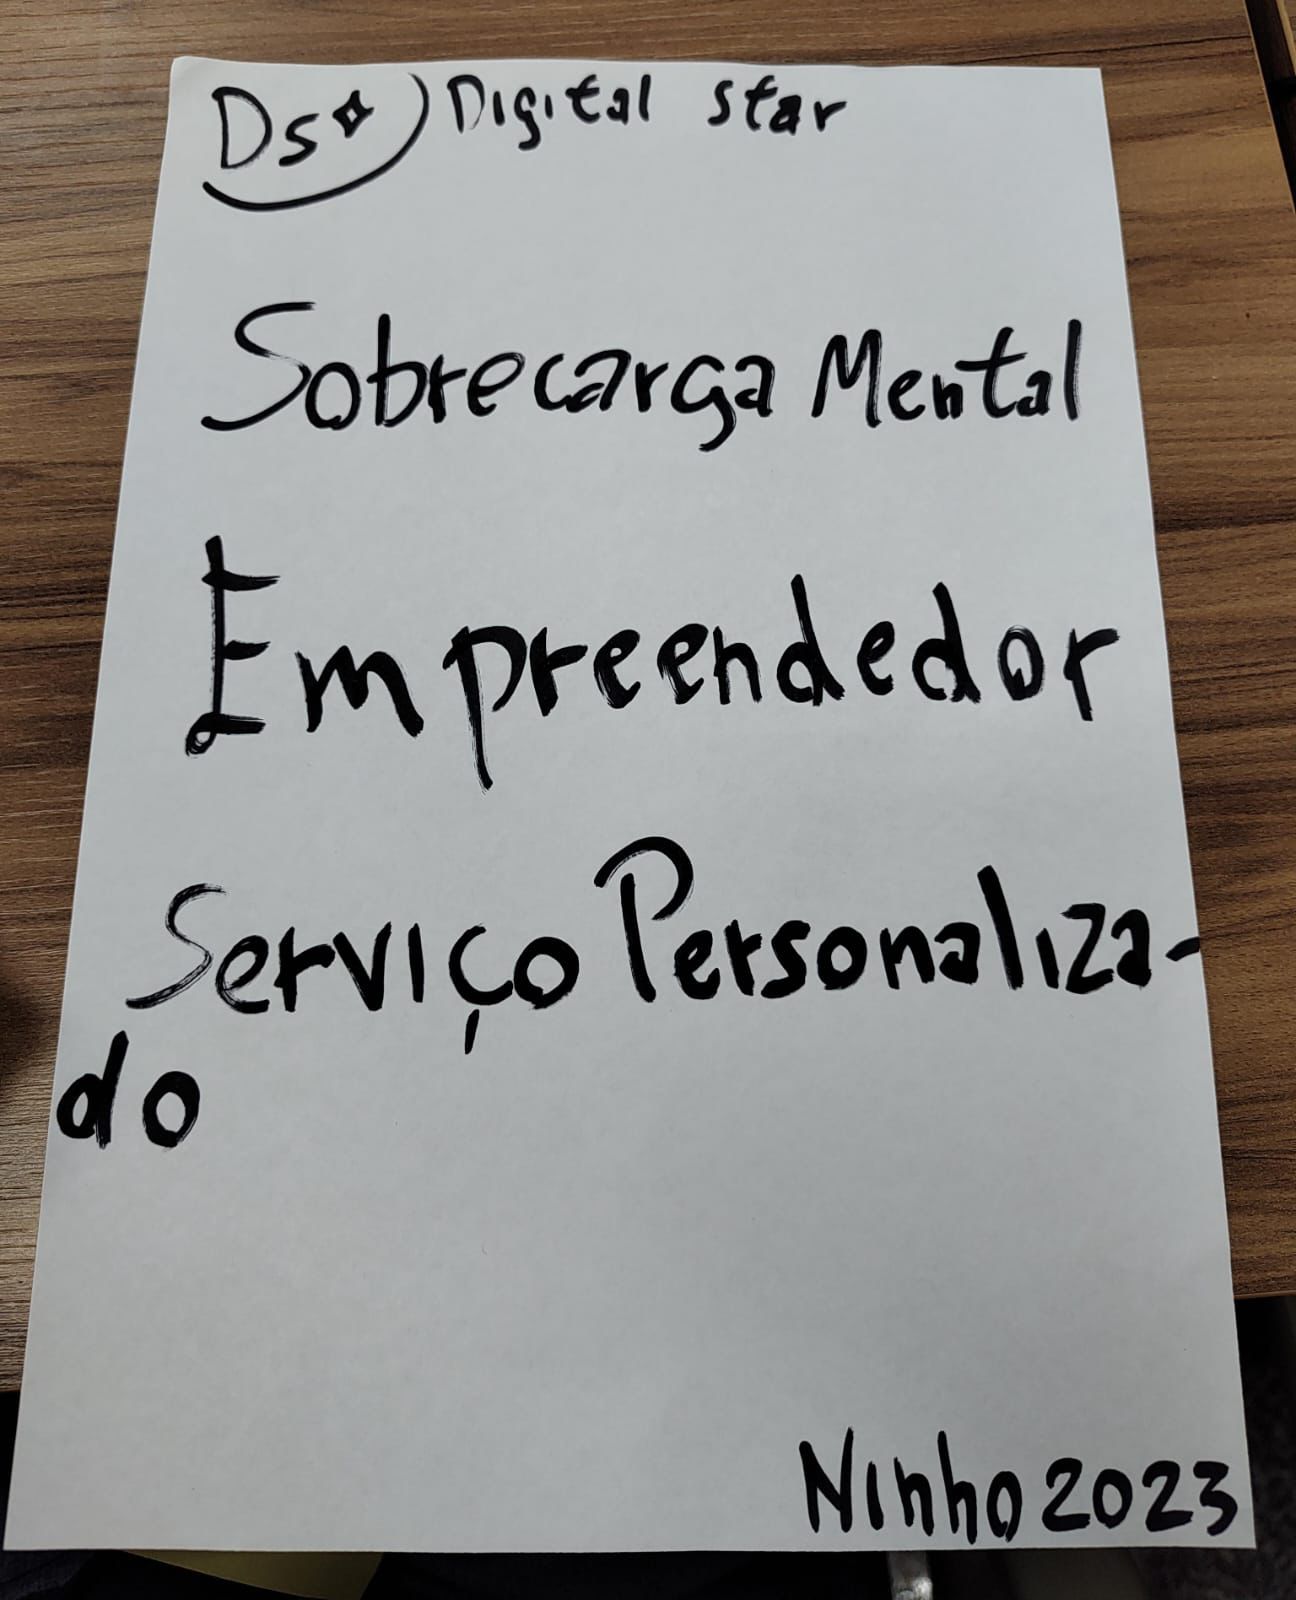 Ds Digital star
Sobrecarga Mental
Empreendedor
Serviço Personaliza-
do
Ninho 2023